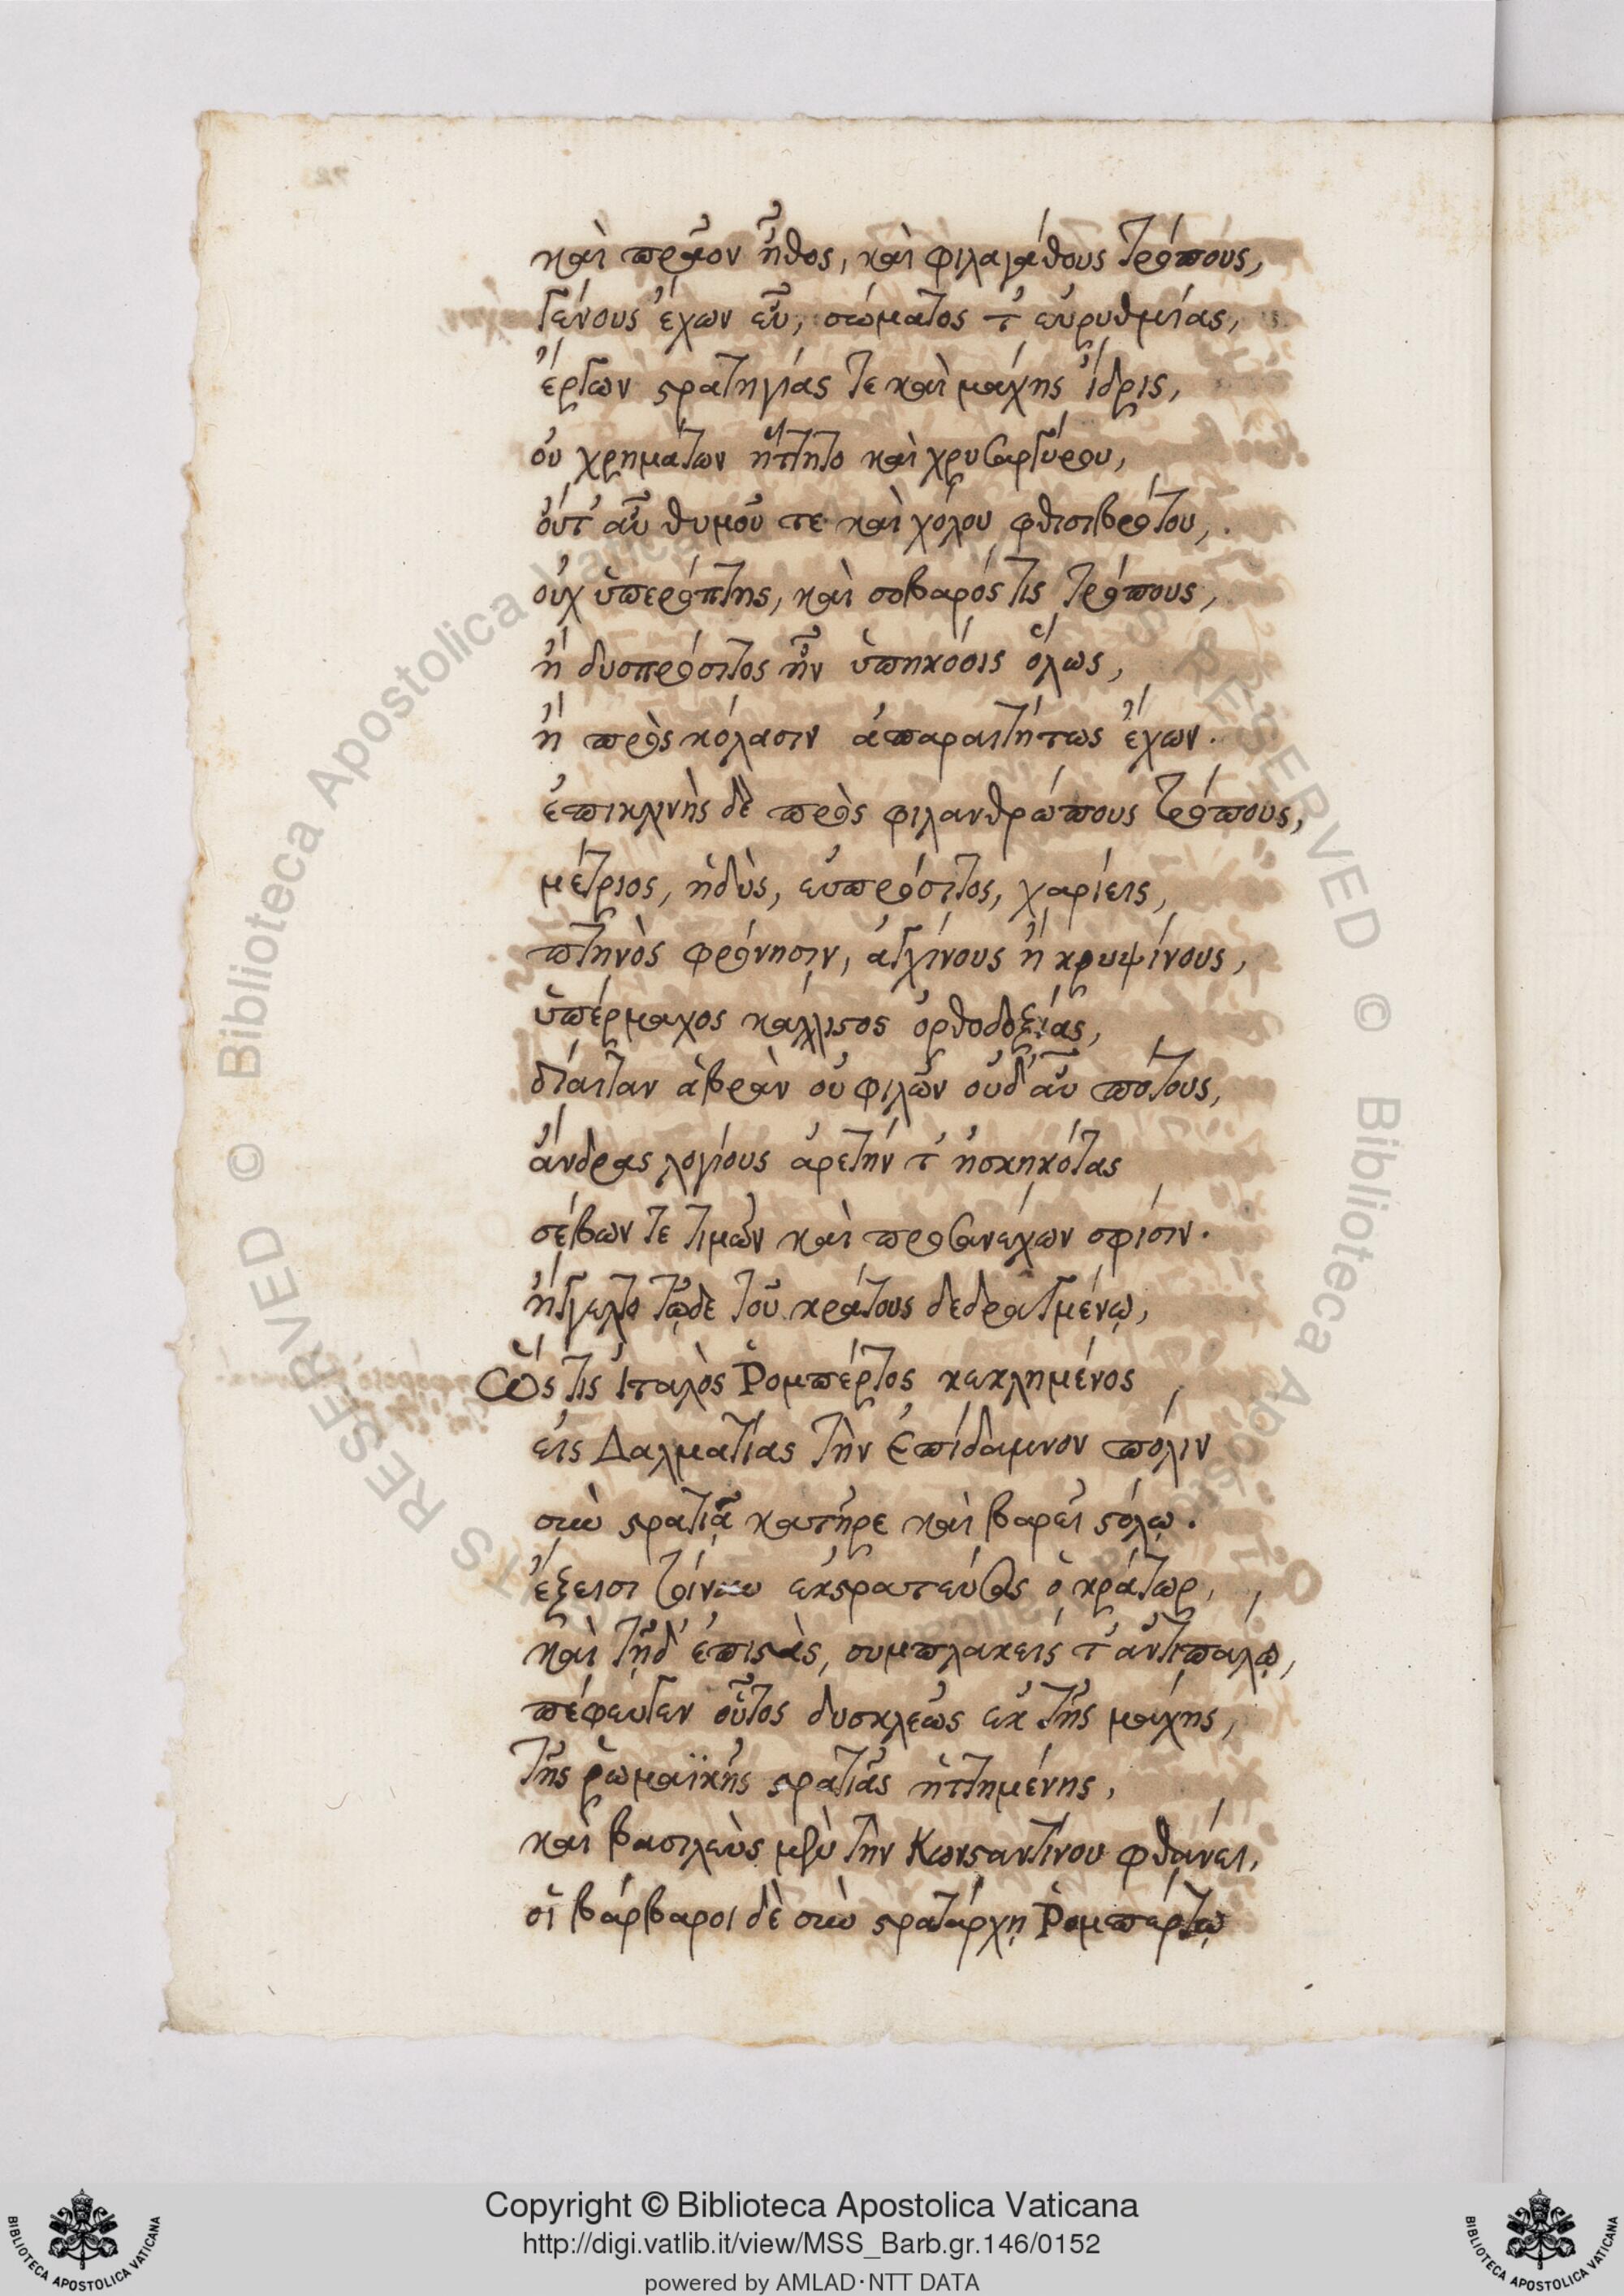 καὶ πρᾶον ἦθος, καὶ φιλαγάθους τρόπους,
γένους ἔχων εὖ, σώματος τ' εὐρυθμίας,
ἔργων στρατηγίας τε καὶ μάχης ἴδρις,
οὐ χρημάτων ἥττητο καὶ χρυσαργύρου,
οὔτ' αὖ θυμοῦ τε καὶ χόλου φθισιβρότου,
οὐχ ὑπερόπτης, καὶ σοβαρός τις τρόπους,
ἢ δυσπρόσιτος ἦν ὑπηκόοις ὅλως,
ἢ πρὸς κόλασιν ἀπαραιτήτως ἔχων.
ἐπικλινὴς δὲ πρὸς φιλανθρώπους τρόπους,
μέτριος, ἡδὺς, εὐπρόσιτος, χαρίεις,
πτηνὸς φρόνησιν, ἀγχίνους ἢ κρυψίνους,
ὑπέρμαχος κάλλιστος ὀρθοδοξίας,
δίαιταν ἁβρὰν οὐ φιλῶν οὐδ' αὖ πότους,
ἄνδρας λογίους ἀρετήν τ' ἠσκηκότας
σέβων τε τιμῶν καὶ προσανέχων σφίσιν.
ἤγγελτο τῷδε τοῦ κράτους δεδραγμένῳ,
Ὥς τις ἰταλὸς Ῥομπέρτος κεκλημένος
εἰς Δαλματίας τὴν Ἐπίδαμνον πόλιν
σὺν στρατιᾷ κατῆρε καὶ βαρεῖ στόλῳ.
ἔξεισι τοίνυν ἐκστρατεύσας ὁ κράτωρ,
καὶ τῇδ' ἐπιστὰς, συμπλακείς τ' ἀντιπάλῳ,
πέφευγεν οὗτος δυσκλεῶς ἐκ τῆς μάχης,
τῆς ῥωμαϊκῆς στρατιᾶς ἡττημένης,
καὶ βασιλεὺς μὲν τὴν Κωνσταντίνου φθάνει,
οἱ βάρβαροι δὲ σὺν στρατάρχῃ Ῥομπέρτῳ
Copyright © Biblioteca Apostolica Vaticana
http://digi.vatlib.it/view/MSS_Barb.gr.146/0152
powered by AMLAD·NTT DATA